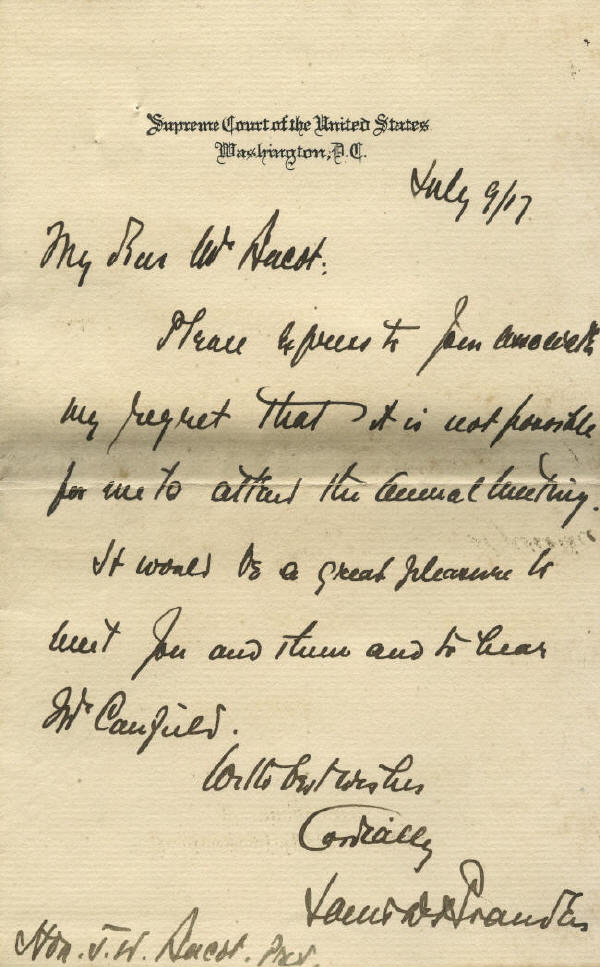 Supreme Court of the United States
Washington, D.C.
July 9/17
My Dear Mr Bacot:
Please express to your associates
my regret that it is not possible
for me to attend the annual meeting.
It would be a great pleasure to
meet you and them and to hear
Mr Canfield.
With best wishes
Cordially
Louis D. Brandeis
Hon. J. W. Bacot. Pres.